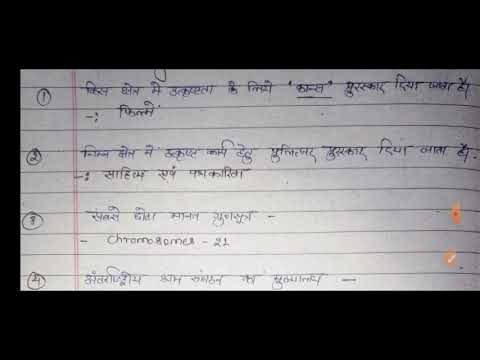 ① किस क्षेत्र में उत्कृष्टता के लिये 'कान्स' पुरस्कार दिया जाता है।
-: फिल्में
② निम्न क्षेत्र में उत्कृष्ट कार्य हेतु पुलित्जर पुरस्कार दिया जाता है।
-: साहित्य एवं पत्रकारिता
③ सबसे छोटा मानव गुणसूत्र -
- Chromosomes - 21
④ अंतर्राष्ट्रीय श्रम संगठन का मुख्यालय -